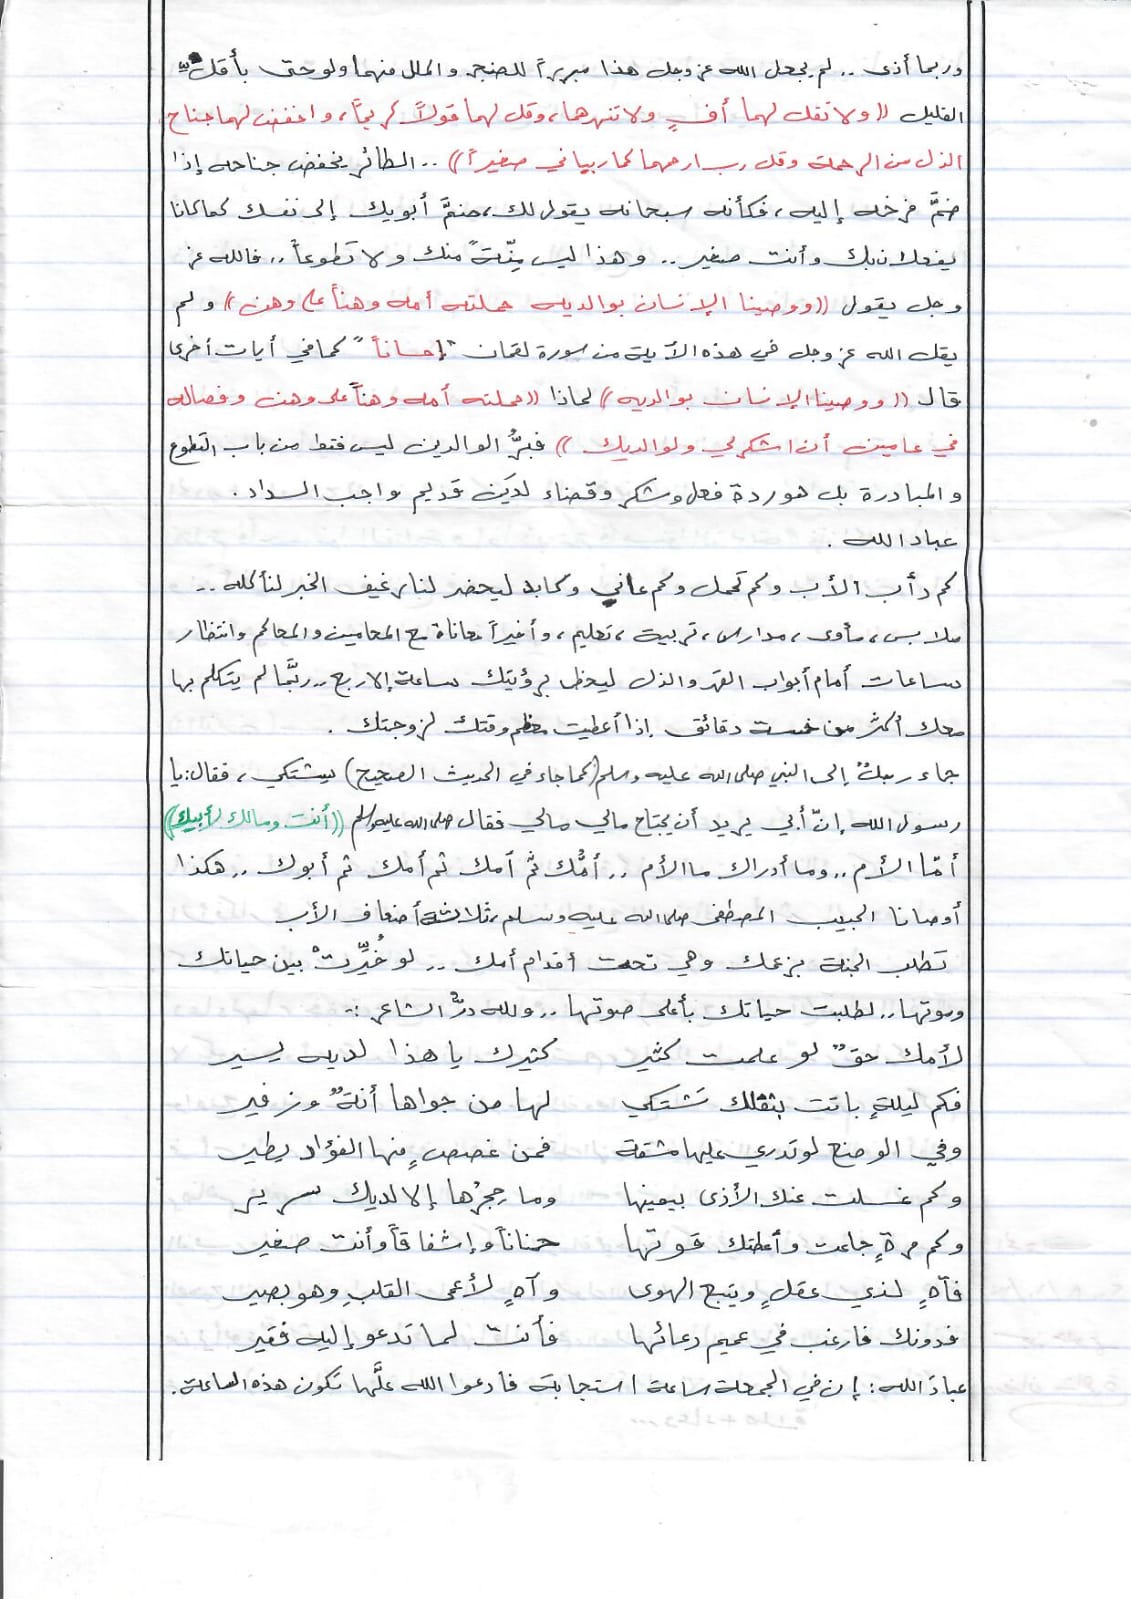 وربما أذى .. لم يجعل الله عز وجل هذا مبرراً للضجر والملل منهما ولو حتى بأقل
القليل ((ولا تقل لهما أفٍ ولا تنهرهما، وقل لهما قولاً كريماً، واخفض لهما جناح
الذل من الرحمة وقل رب ارحمهما كما ربياني صغيراً)) .. الطائر يخفض جناحه إذا
ضمَّ فرخه إليه، فكأنه سبحانه يقول لك، ضمَّ أبويك إلى نفسك كما كانا
يفعلان بك وأنت صغير .. وهذا ليس مِنّةً منك ولا تطوعاً .. فالله عز
وجل يقول ((ووصينا الإنسان بوالديه حملته أمه وهناً على وهن)) ولم
يقل الله عز وجل في هذه الآية من سورة لقمان "إحساناً" كما في آيات أخرى
قال ((ووصينا الإنسان بوالديه)) لماذا ((حملته أمه وهناً على وهن وفصاله
في عامين أن اشكر لي ولوالديك)) فبرُّ الوالدين ليس فقط من باب التطوع
والمبادرة بل هو ردة فعل وشكر وقضاء لدَين قديم واجب السداد .
عباد الله .
كم دأب الأب وكم تحمل وكم عانى وكابد ليحضر لنا رغيف الخبز لنأكله ..
ملابس، مأوى، مدارس، تربية، تعليم، وأخيراً معاناة مع المحامين والمحاكم وانتظار
ساعات أمام أبواب القهر والذل ليحظى برؤيتك ساعة إلا ربع .. ربَّما لم يتكلم بها
معك أكثر من خمسة دقائق إذا أعطيت معظم وقتك لزوجتك .
جاء رجلٌ إلى النبي صلى الله عليه وسلم (كما جاء في الحديث الصحيح) يشتكي، فقال: يا
رسول الله إنّ أبي يريد أن يجتاح مالي مالي فقال صلى الله عليه وسلم ((أنت ومالك لأبيك))
أمّا الأم .. وما أدراك ما الأم .. أمُّك ثمَّ أمك ثم أمك ثم أبوك .. هكذا
أوصانا الحبيب المصطفى صلى الله عليه وسلم، ثلاثة أضعاف الأب
تطلب الجنة بزعمك وهي تحت أقدام أمك .. لو خُيِّرتْ بين حياتك
وموتها .. لطلبت حياتك بأعلى صوتها .. ولله درُّ الشاعر :-
لأمك حقٌ لو علمت كثير كثيرك يا هذا لديه يسير
فكم ليلةٍ باتت بثقلك تشتكي لها من جواها أنةٌ وزفير
وفي الوضع لو تدري عليها مشقة فمن غصصٍ منها الفؤاد يطير
وكم غسلت عنك الأذى بيمينها وما حِجرُها إلا لديك سرير
وكم مرةٍ جاعت وأعطتك قوتها حناناً وإشفاقاً وأنت صغير
فآهٍ لذي عقلٍ ويتبع الهوى وآهٍ لأعمى القلبِ وهو بصير
فدونك فارغب في عميم دعائها فأنت لما تدعو إليه فقير
عبادَ الله: إن في الجمعة ساعة استجابة فادعوا الله علَّها تكون هذه الساعة.